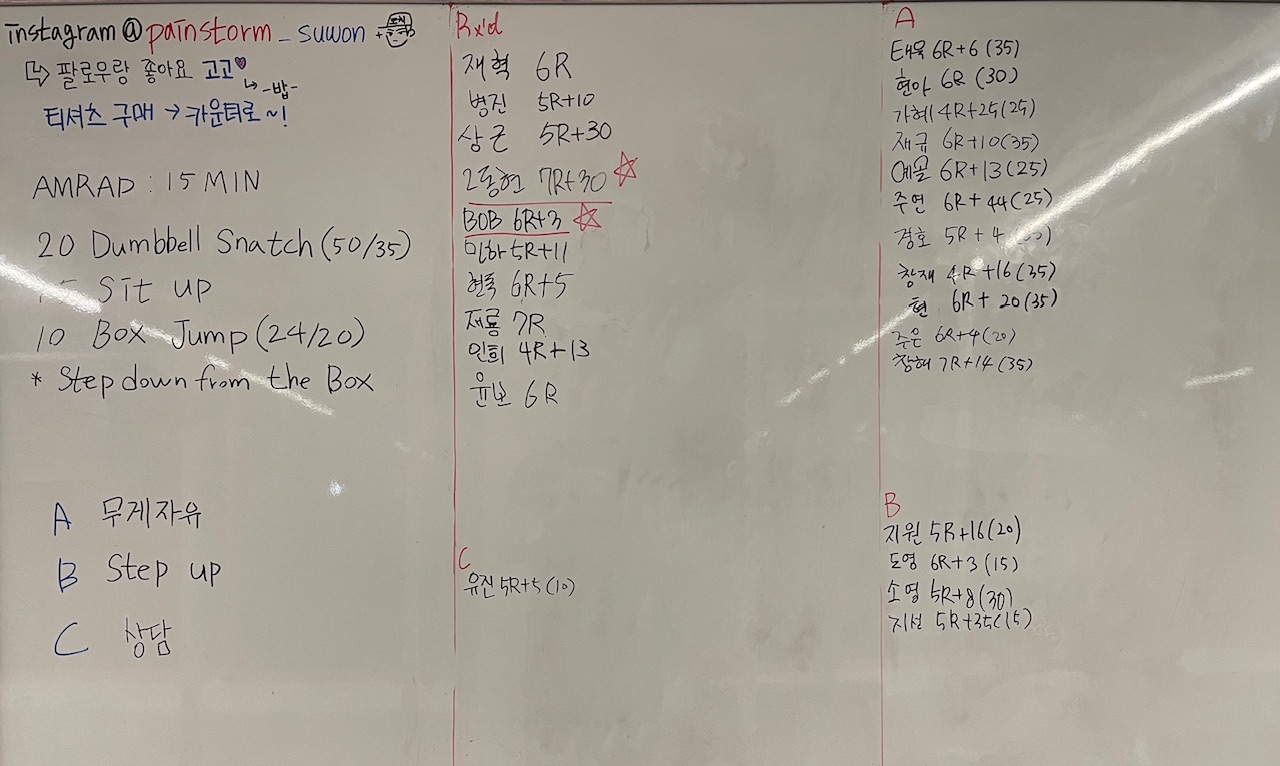 instagram@painstorm_suwon
↳ 팔로우랑 좋아요 고고♥
↳ -밥-
티셔츠 구매 → 카운터로~!
AMRAP : 15 MIN
20 Dumbbell Snatch (50/35)
15 Sit up
10 Box Jump (24/20)
* Step down from the Box
A 무게자유
B Step up
C 상담
Rx'd
재혁 6R
병진 5R+10
상근 5R+30
고동현 7R+30 ☆
BOB 6R+3 ☆
민하 5R+11
6R+5
재룡 7R
인희 4R+13
윤보 6R
C
유진 5R+5 (10)
A
태욱 6R+6 (35)
현아 6R (30)
가혜 4R+25 (25)
재규 6R+10 (35)
예솔 6R+13 (25)
주연 6R+44 (25)
경호 5R+4
창재 4R+16 (35)
현 6R+20 (35)
주은 6R+4 (20)
창해 7R+14 (35)
B
지원 5R+16 (20)
도영 6R+3 (15)
소영 5R+8 (30)
지선 5R+35 (15)